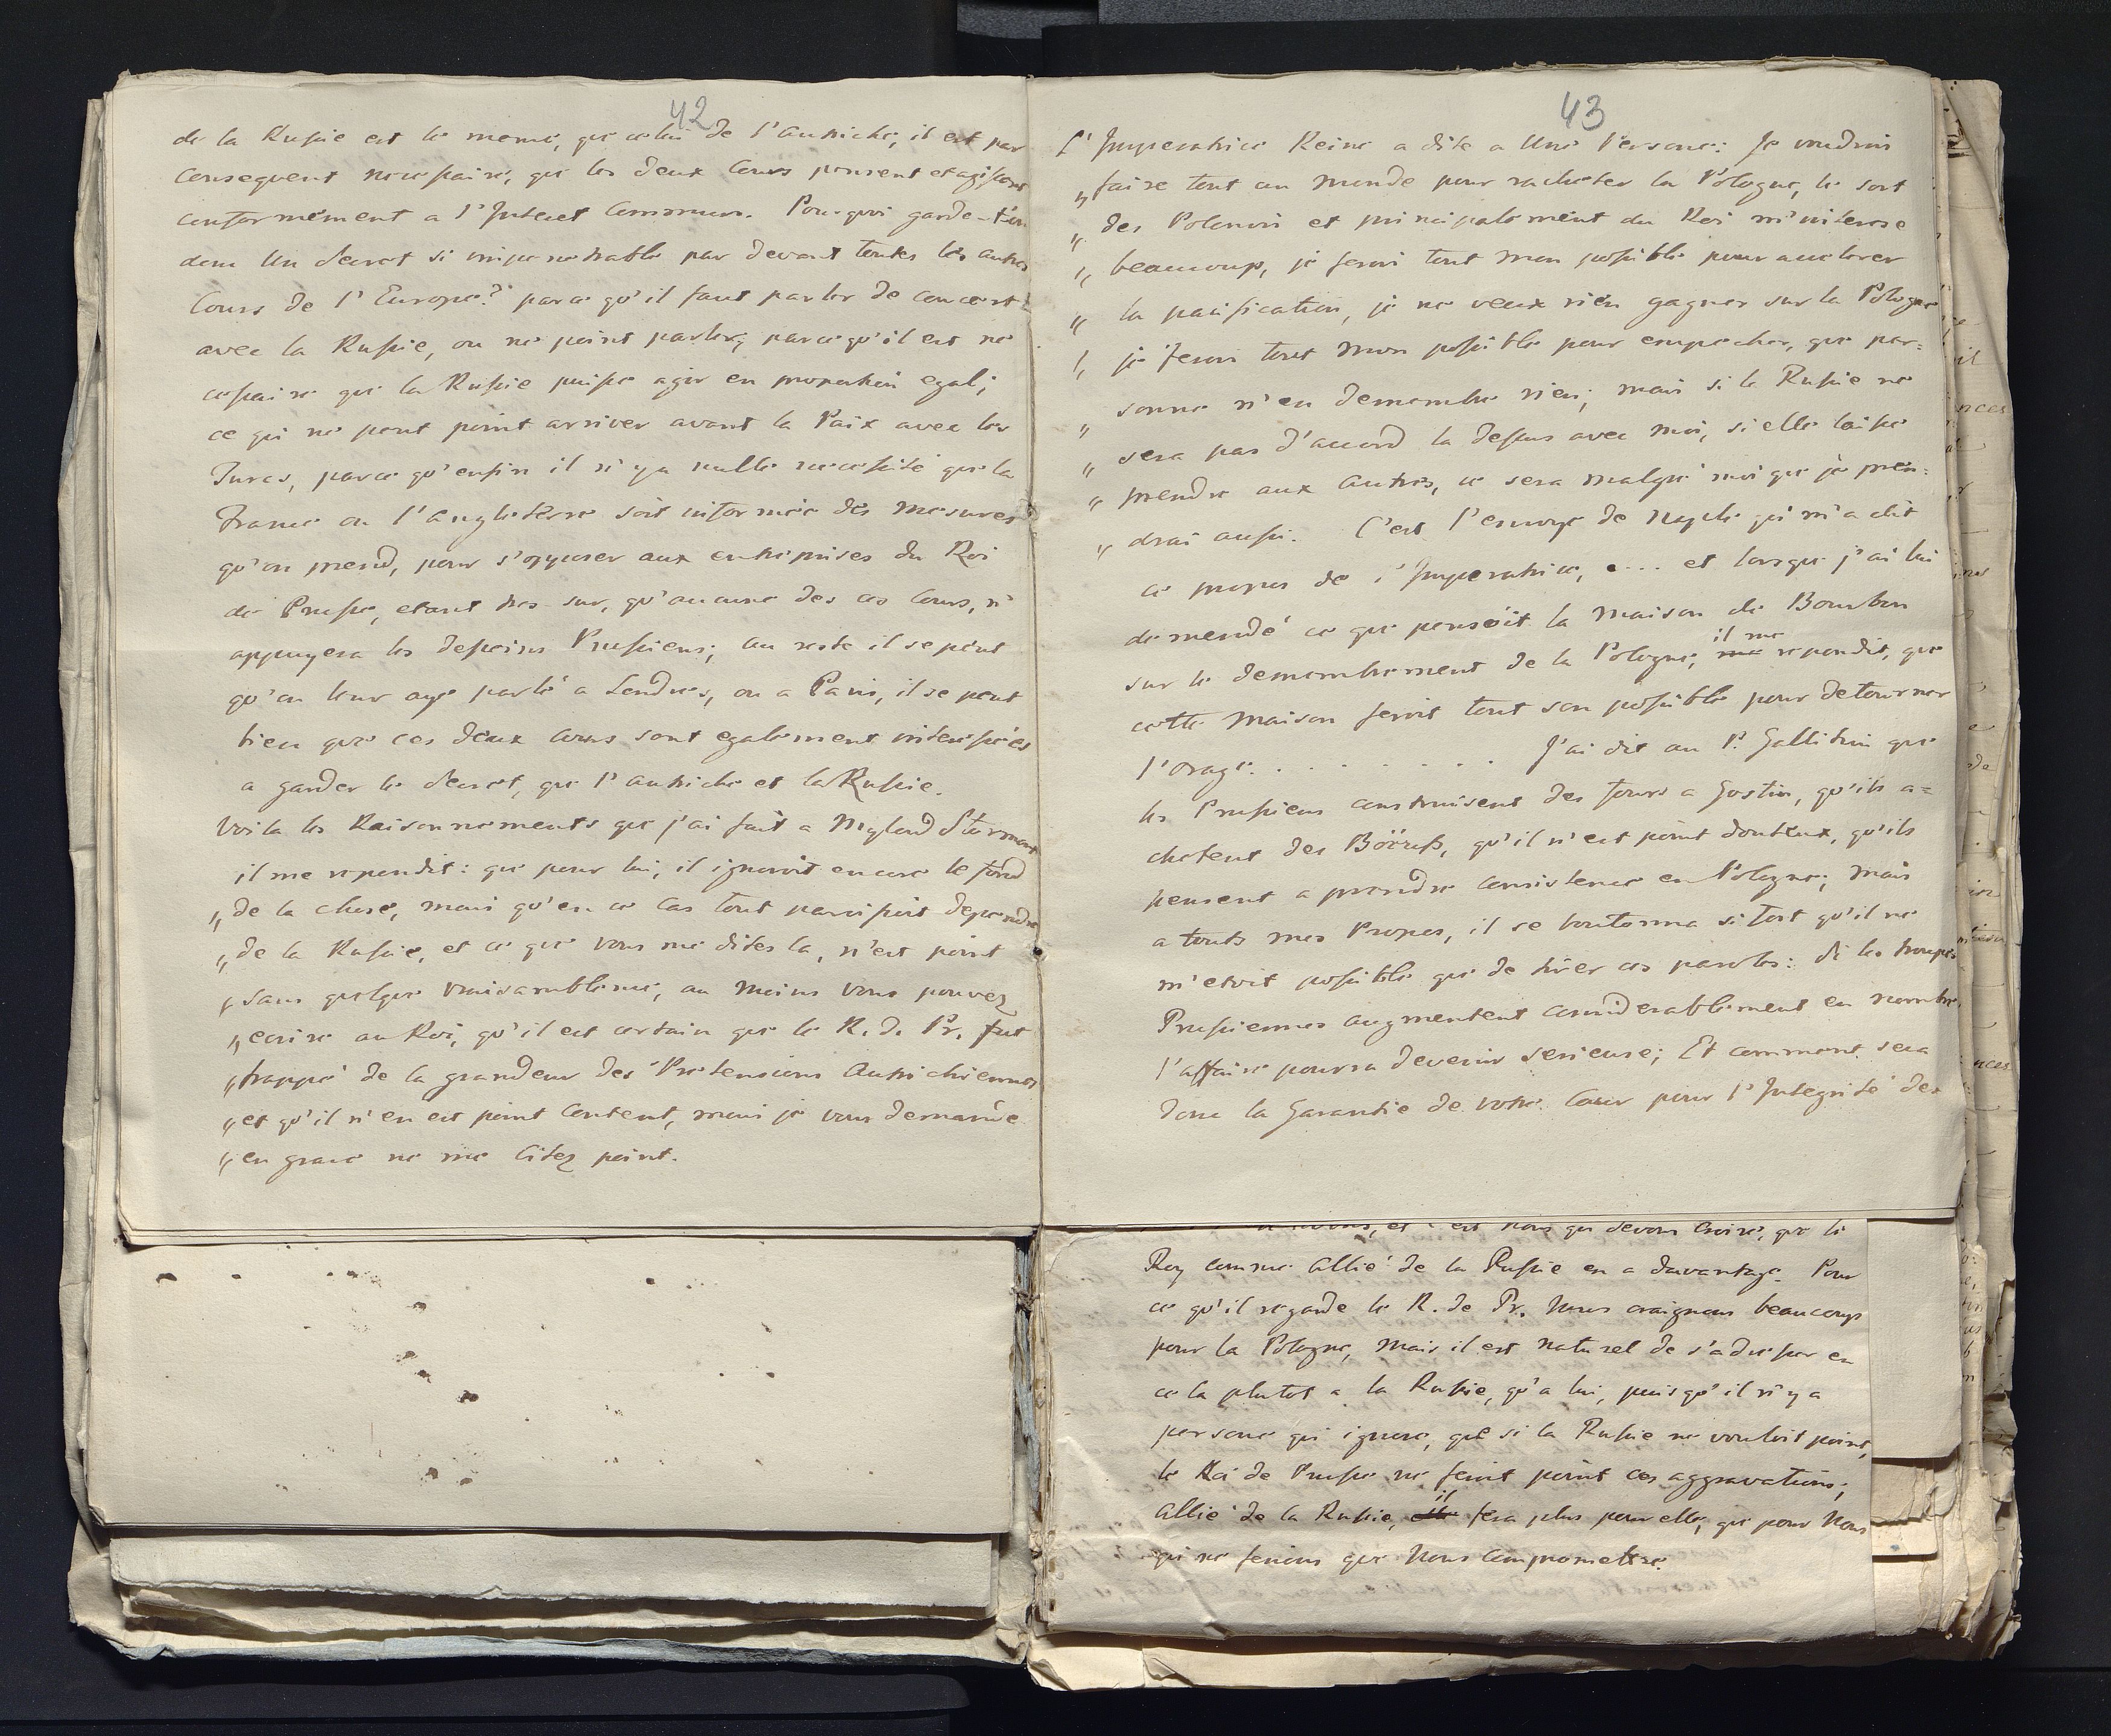 42
de la Russie est le meme, que celui de l'Autriche, il est par
consequent necessaire, que les deux Cours pensent et agissent
conformement a l'Interet Commun. Pourquoi garde-t'on
donc Un Secret si impenetrable par devant toutes les autres
Cours de l'Europe? parce qu'il faut parler de concert
avec la Russie, ou ne point parler; parce qu'il est ne
cessaire que la Russie puisse agir en proportion egal;
ce qui ne peut point arriver avant la Paix avec les
Turcs, parce qu'enfin il n'y a nulle necessité que la
France ou l'Angleterre soit informée des mesures
qu'on prend, pour s'opposer aux entreprises du Roi
de Prusse, etant tres sur, qu'aucune des ces Cours, n'
appuyera les desseins Prussiens; au reste il se peut
qu'on leur aye parlé a Londres, ou a Paris, il se peut
bien que ces deux cours sont egalement interessées
a garder le Secret, que l'Autriche et la Russie.
Voila les Raisonnements que j'ai fait a Mylord Stormont
il me repondit: que pour lui, il ignoroit encore le fond
„de la chose, mais qu'en ce Cas tout paroissoit dependre
„de la Russie, et ce que vous me dites la, n'est point
„sans quelque vraisamblence, au moins vous pouvez
„ecrire au Roi, qu'il est certain que le R. d. Pr. fut
„frappé de la grandeur des Pretensions Autrichiennes
„et qu'il n'en est point Content, mais je vous demande
„en grace ne me Citez point.
43
L'Imperatrice Reine a dite a Une Persone: Je voudrois
„faire tout au monde pour racheter la Pologne, le sort
„des Polonois et principalement du Roi m'interese
„beaucoup, je ferai tout mon possible pour accelerer
„la pacification, je ne veux rien gagner sur la Pologne
„je ferai tout mon possible pour empecher, que per=
„sonne n'en demembre rien; mais si la Russie ne
„sera pas d'accord la dessus avec moi, si elle laisse
„prendre aux Autres, ce sera malgré moi que je pren=
„drai aussi. C'est l'envoye de Naple qui m'a dit
ce propos de l'Imperatrice, .... et lorsque j'ai lui
demendé ce que pensoit la Maison de Bourbon
sur le demembrement de la Pologne; il me repondit, que
cette Maison feroit tout son possible pour detourner
l'orage. . . . . . . . . J'ai dit au P. Gallitzin que
les Prussiens construisent des fours a Gostin, qu'ils a=
chetent des , qu'il n'est point douteux, qu'ils
pensent a prendre consistence en Pologne; mais
a touts mes Propos, il se boutonna si fort qu'il ne
m'etoit possible que de tirer ces paroles: Si les troupes
Prussiennes augmentent considerablement en nombre
l'affaire pourra devenir serieuse; Et comment sera
donc la Garantie de votre Cour pour l'Integrité des
, et c'est nous qui devons croire, que le
Roy comme Allié de la Russie en a davantage. Pour
ce qu'il regarde le R. de Pr. Nous craignons beaucoup
pour la Pologne, Mais il est naturel de s'adresser en
ce la plutot a la Russie, qu'a lui, puisqu'il n'y a
persone qui ignore, que si la Russie ne vouloit point,
le Roi de Prusse ne feroit point ces aggravations;
Allié de la Russie, il fera plus pour elle, que pour Nous
qui ne ferions que Nous compromettre.